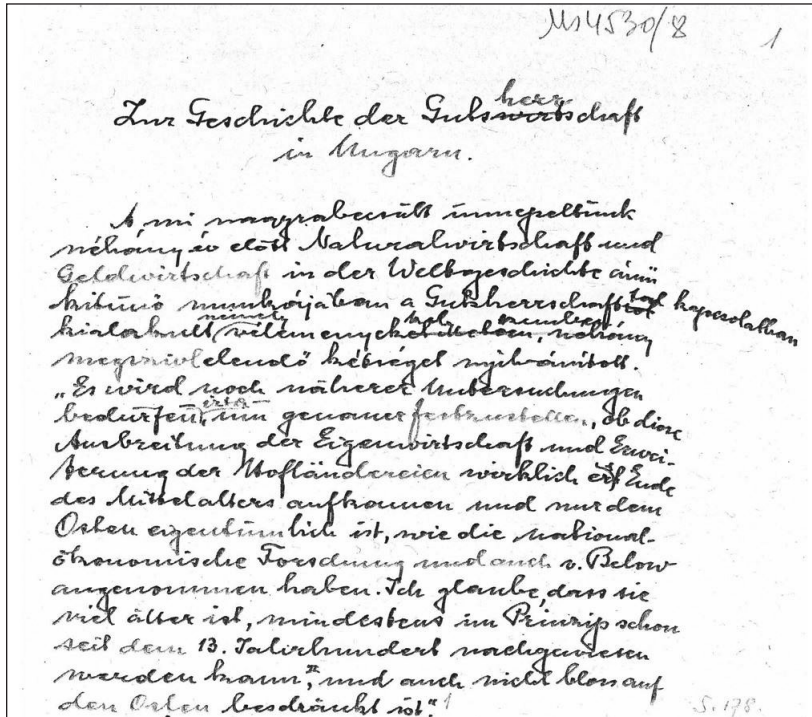 Ms 4530/8 1
herr
Zur Geschichte der Gutswirtschaft
in Ungarn.
A mi nagyrabecsült ünnepeltünk
néhány év előtt Naturalwirtschaft und
Geldwirtschaft in der Weltgeschichte című
kitünő munkájában a Gutsherrschafttal kapcsolatban
kialakult véleményekkel szemben, néhány
megszívlelendő kétséget nyilvánított.
„Es wird noch näherer Untersuchungen
bedürfen, um genauer festzustellen, ob diese
Ausbreitung der Eigenwirtschaft und Erwei-
terung der Hofländereien wirklich erst Ende
des Mittelalters aufkommen und nur dem
Osten eigentümlich ist, wie die national-
ökonomische Forschung und auch v. Below
angenommen haben. Ich glaube, dass sie
viel älter ist, mindestens im Prinzip schon
seit dem 13. Jahrhundert nachgewiesen
werden kann, und auch nicht bloss auf
den Osten beschränkt ist."1 S. 178.